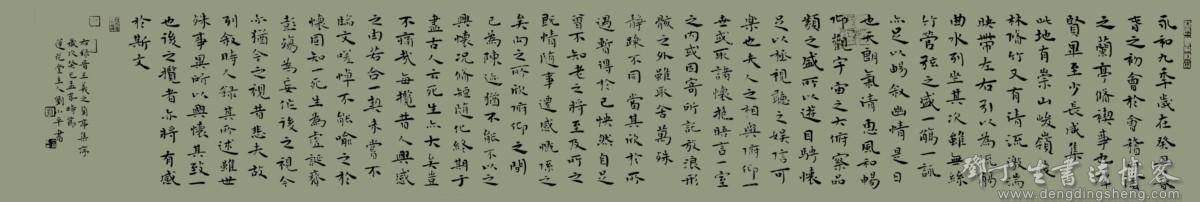 永和九年歲在癸丑暮
春之初會於會稽山陰
之蘭亭脩禊事也群
賢畢至少長咸集
此地有崇山峻嶺茂
林脩竹又有清流激湍
映帶左右引以為流觴
曲水列坐其次雖無絲
竹管弦之盛一觴一詠
亦足以暢敘幽情是日
也天朗氣清惠風和暢
仰觀宇宙之大俯察品
類之盛所以遊目騁懷
足以極視聽之娛信可
樂也夫人之相與俯仰一
世或取諸懷抱晤言一室
之內或因寄所託放浪形
骸之外雖取舍萬殊
靜躁不同當其欣於所
遇暫得於己快然自足
曾不知老之將至及所之
既情隨事遷感慨係之
矣向之所欣俯仰之間
已為陳迹猶不能不以之
興懷況脩短隨化終期于
盡古人云死生亦大矣豈
不痛哉每攬昔人興感
之由若合一契未嘗不
臨文嗟悼不能喻之於
懷固知一死生為虛誕齊
彭殤為妄作後之視今
亦猶今之視昔悲夫故
列敘時人錄其所述雖世
殊事異所以興懷其致一
也後之攬者亦將有感
於斯文
右錄晉王羲之蘭亭集序
歲次癸巳孟冬時寫
蓮花堂主人劉小平書
鄧丁生書法博客
www.dengdingsheng.com